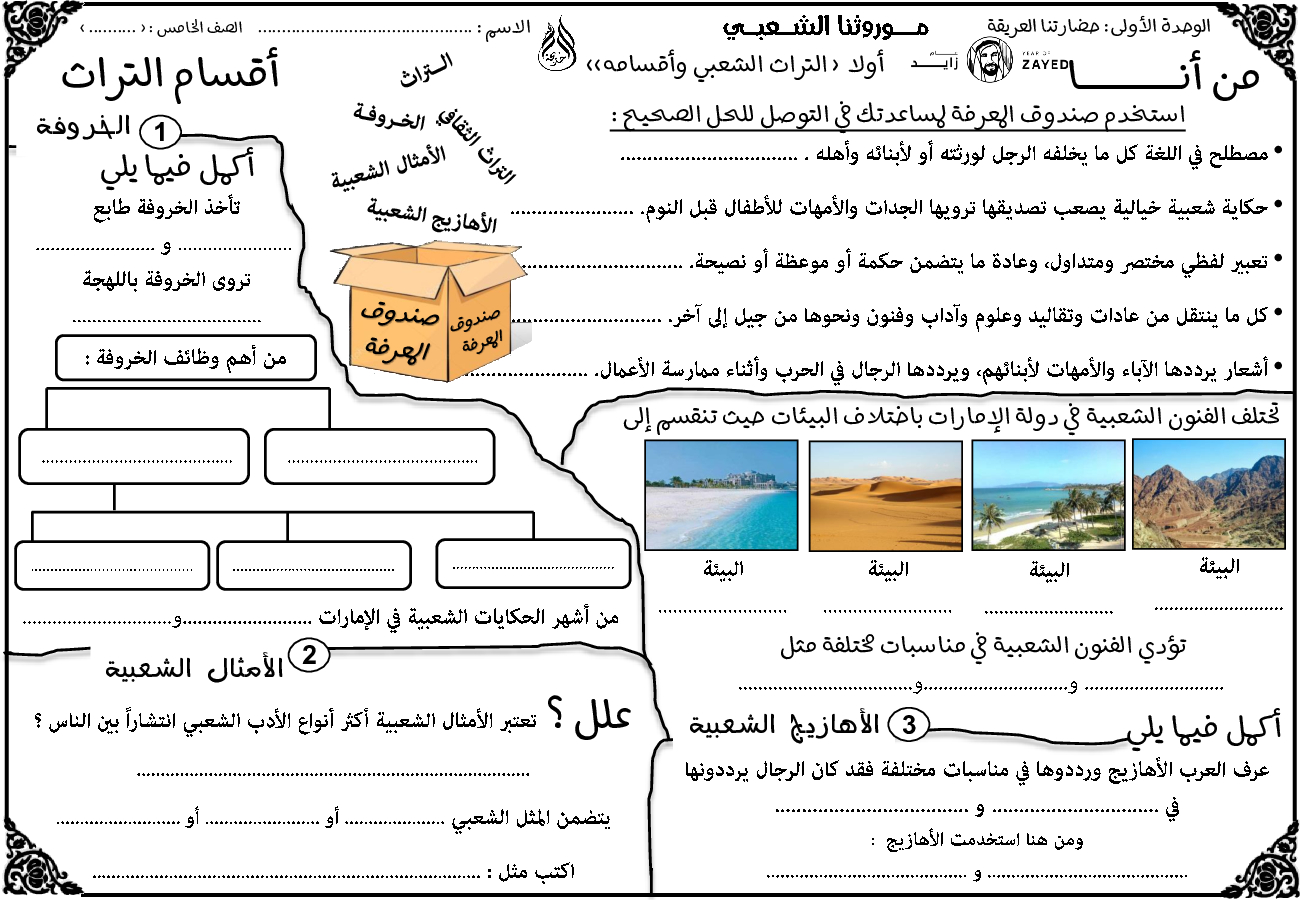 الوحدة الأولى: حضارتنا العريقة
موروثنا الشعبي
الاسم : ............................................
الصف الخامس : ‹ .......... ›
أولا ‹ التراث الشعبي وأقسامه››
عام زايد
YEAR OF
ZAYED
من أنــــــا
استخدم صندوق المعرفة لمساعدتك في التوصل للحل الصحيح :
• مصطلح في اللغة كل ما يخلفه الرجل لورثته أو لأبنائه وأهله . ...............................
• حكاية شعبية خيالية يصعب تصديقها ترويها الجدات والأمهات للأطفال قبل النوم. ......................
• تعبير لفظي مختصر ومتداول، وعادة ما يتضمن حكمة أو موعظة أو نصيحة. ............................
• كل ما ينتقل من عادات وتقاليد وعلوم وآداب وفنون ونحوها من جيل إلى آخر. ...........................
• أشعار يرددها الآباء والأمهات لأبنائهم، ويرددها الرجال في الحرب وأثناء ممارسة الأعمال. ......................
التراث
الخروفة
التراث الثقافي
الأمثال الشعبية
الأهازيج الشعبية
صندوق المعرفة
صندوق المعرفة
أقسام التراث
1 الخروفة
أكمل فيما يلي
تأخذ الخروفة طابع
...................... و ......................
تروى الخروفة باللهجة
..................................
من أهم وظائف الخروفة :
..................................
..................................
..............................
..............................
..............................
من أشهر الحكايات الشعبية في الإمارات ........................و............................
تختلف الفنون الشعبية في دولة الإمارات باختلاف البيئات حيث تنقسم إلى
البيئة
البيئة
البيئة
البيئة
........................
........................
........................
........................
تؤدي الفنون الشعبية في مناسبات مختلفة مثل
......................... و..........................و...............................
2 الأمثال الشعبية
علل ؟ تعتبر الأمثال الشعبية أكثر أنواع الأدب الشعبي انتشاراً بين الناس ؟
......................................................................
يتضمن المثل الشعبي .................. أو ..................... أو ......................
اكتب مثل : ......................................................................
3 الأهازيج الشعبية
أكمل فيما يلي
عرف العرب الأهازيج ورددوها في مناسبات مختلفة فقد كان الرجال يرددونها
في .............................. و ...................................
ومن هنا استخدمت الأهازيج :
.................................... و ....................................